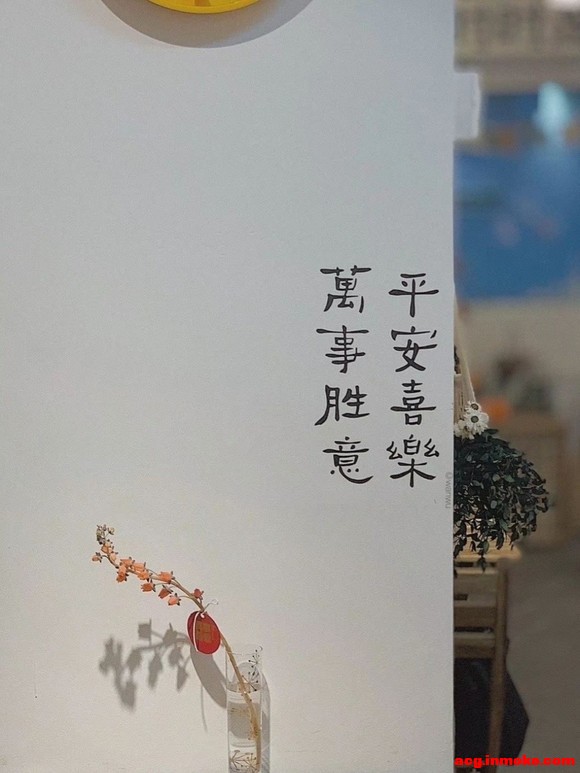 平安喜樂
萬事胜意
acg.inmoke.com